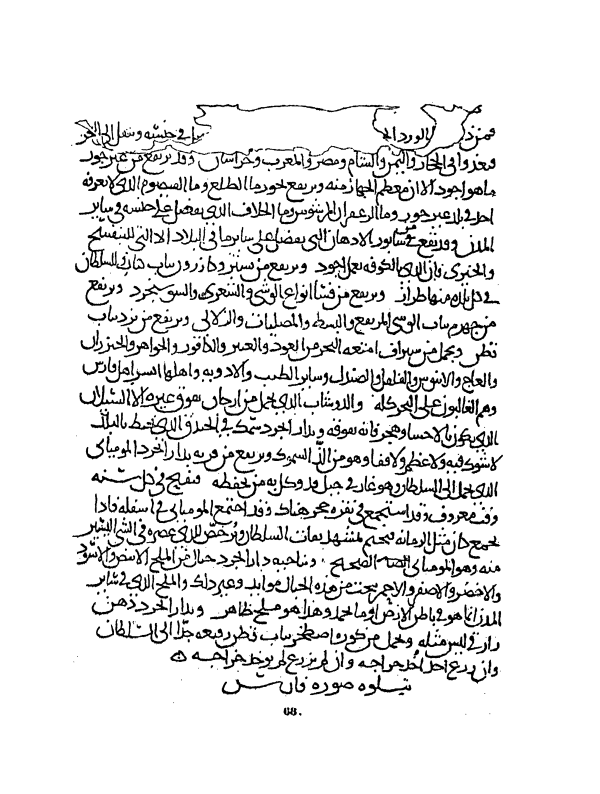 فمن ذ الورد ا في جنسه وينقل الى الاخر
المغرب وخراسان وقد يرتفع من غير جور
ما هو اجود الا ان معظم الجهاز منه ويرتفع بجور ما الطلع وما القيصوم الذي لا يعرف
في بلد غير جور وما الزعفران المرشوش وما الخلاف الذي يفضل على جنسه في ساير
المدن ويرتفع من سابور الادهان التي تفضل على ساير ما في البلاد الا التي للبنفسج
والخيري فان الذي بالكوفه لعل اجود ويرتفع من سينيز وكازرون ثياب هناك للسلطان
في كل بلد منها طراز ويرتفع من فسا انواع الوشي والشعري والسوسنجرد ويرتفع
من جهرم ثياب الوشي المرتفع والبسط والمصليات والزلالي ويرتفع من يزد ثياب
قطن ويحمل من سيراف امتعه البحر من العود والعنبر والكافور والجواهر والخيزران
والعاج والابنوس والفلفل والصندل وساير الطيب والادويه واهلها ايسر اهل فارس
وهم الغالبون على البحر كله والدوشاب الذي يحمل من ارجان يفوق غيره الا السيلان
الذي يكون بالاحسا وهجر فانه يفوقه وبدارابجرد سمك في الخندق الذي يحيط بالبلد
لا شوك فيه ولا عظم ولا فقار وهو من الذ السمك ويرتفع من قريه بدارابجرد الموميائي
الذي يحمل الى السلطان وهو غار في جبل قد وكل به من يحفظه فيفتح في كل سنه
وقت معروف وقد استجمع في نقره حجر هناك وقد اجتمع الموميائي في اسفله فاذا
جمع كان مثل الرمانه فيختم بمشهد ثقات السلطان ويرضخ للذي عصره في الشي اليسير
منه وهو الموميائي الصحيح وبناحيه دارابجرد جبال من الملح الابيض والاسود
والاخضر والاصفر والاحمر ينحت من هذه الجبال موايد وغير ذلك والملح الذي في ساير
المدن انما هو في باطن الارض او ما يجمد وهذا هو ملح ظاهر وبدارابجرد دهن
رازقي ليس مثله ويحمل من كوره اصطخر ثياب قطن رفيعه جدا الى السلطان
وان زرع احد اخذ خراجه وان لم يزرع لم يوخذ خراجه
يتلوه صوره فارس
68.